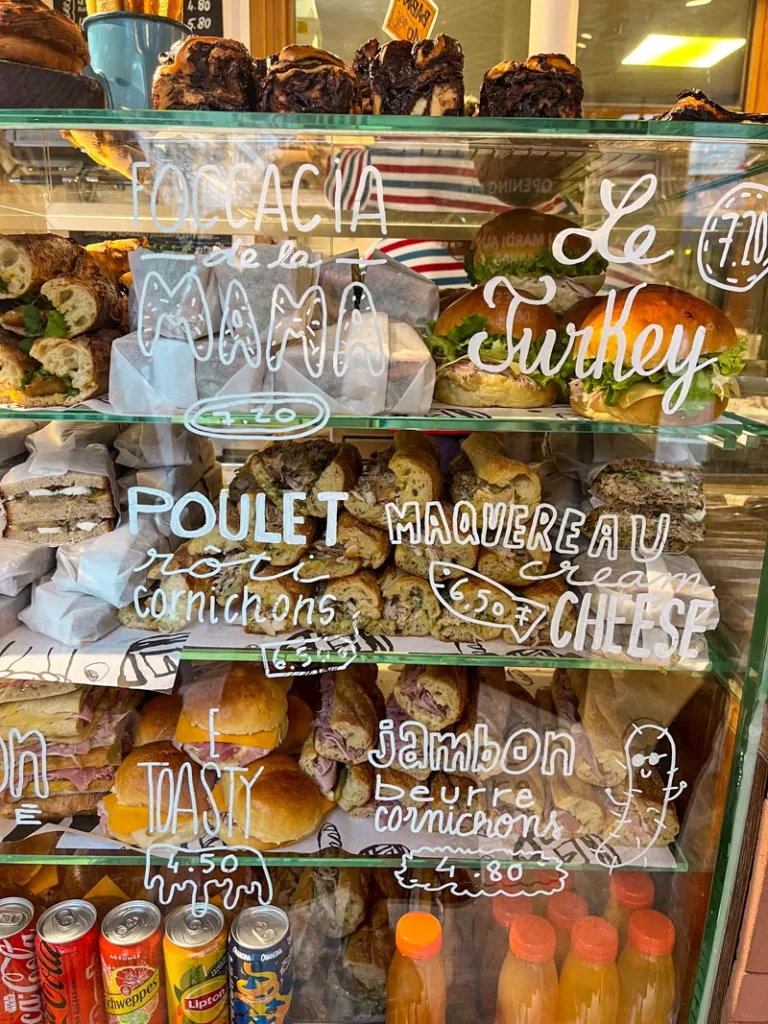 4.80
5.80
FOCCACIA
de la
MAMA
7.20
Le
Turkey
7.20
POULET
rôti
cornichons
6.50€
MAQUEREAU
cream
CHEESE
6.50€
LE
TOASTY
4.50
jambon
beurre
cornichons
4.80
Coca-Cola
AGRUMES
Schweppes
Lipton